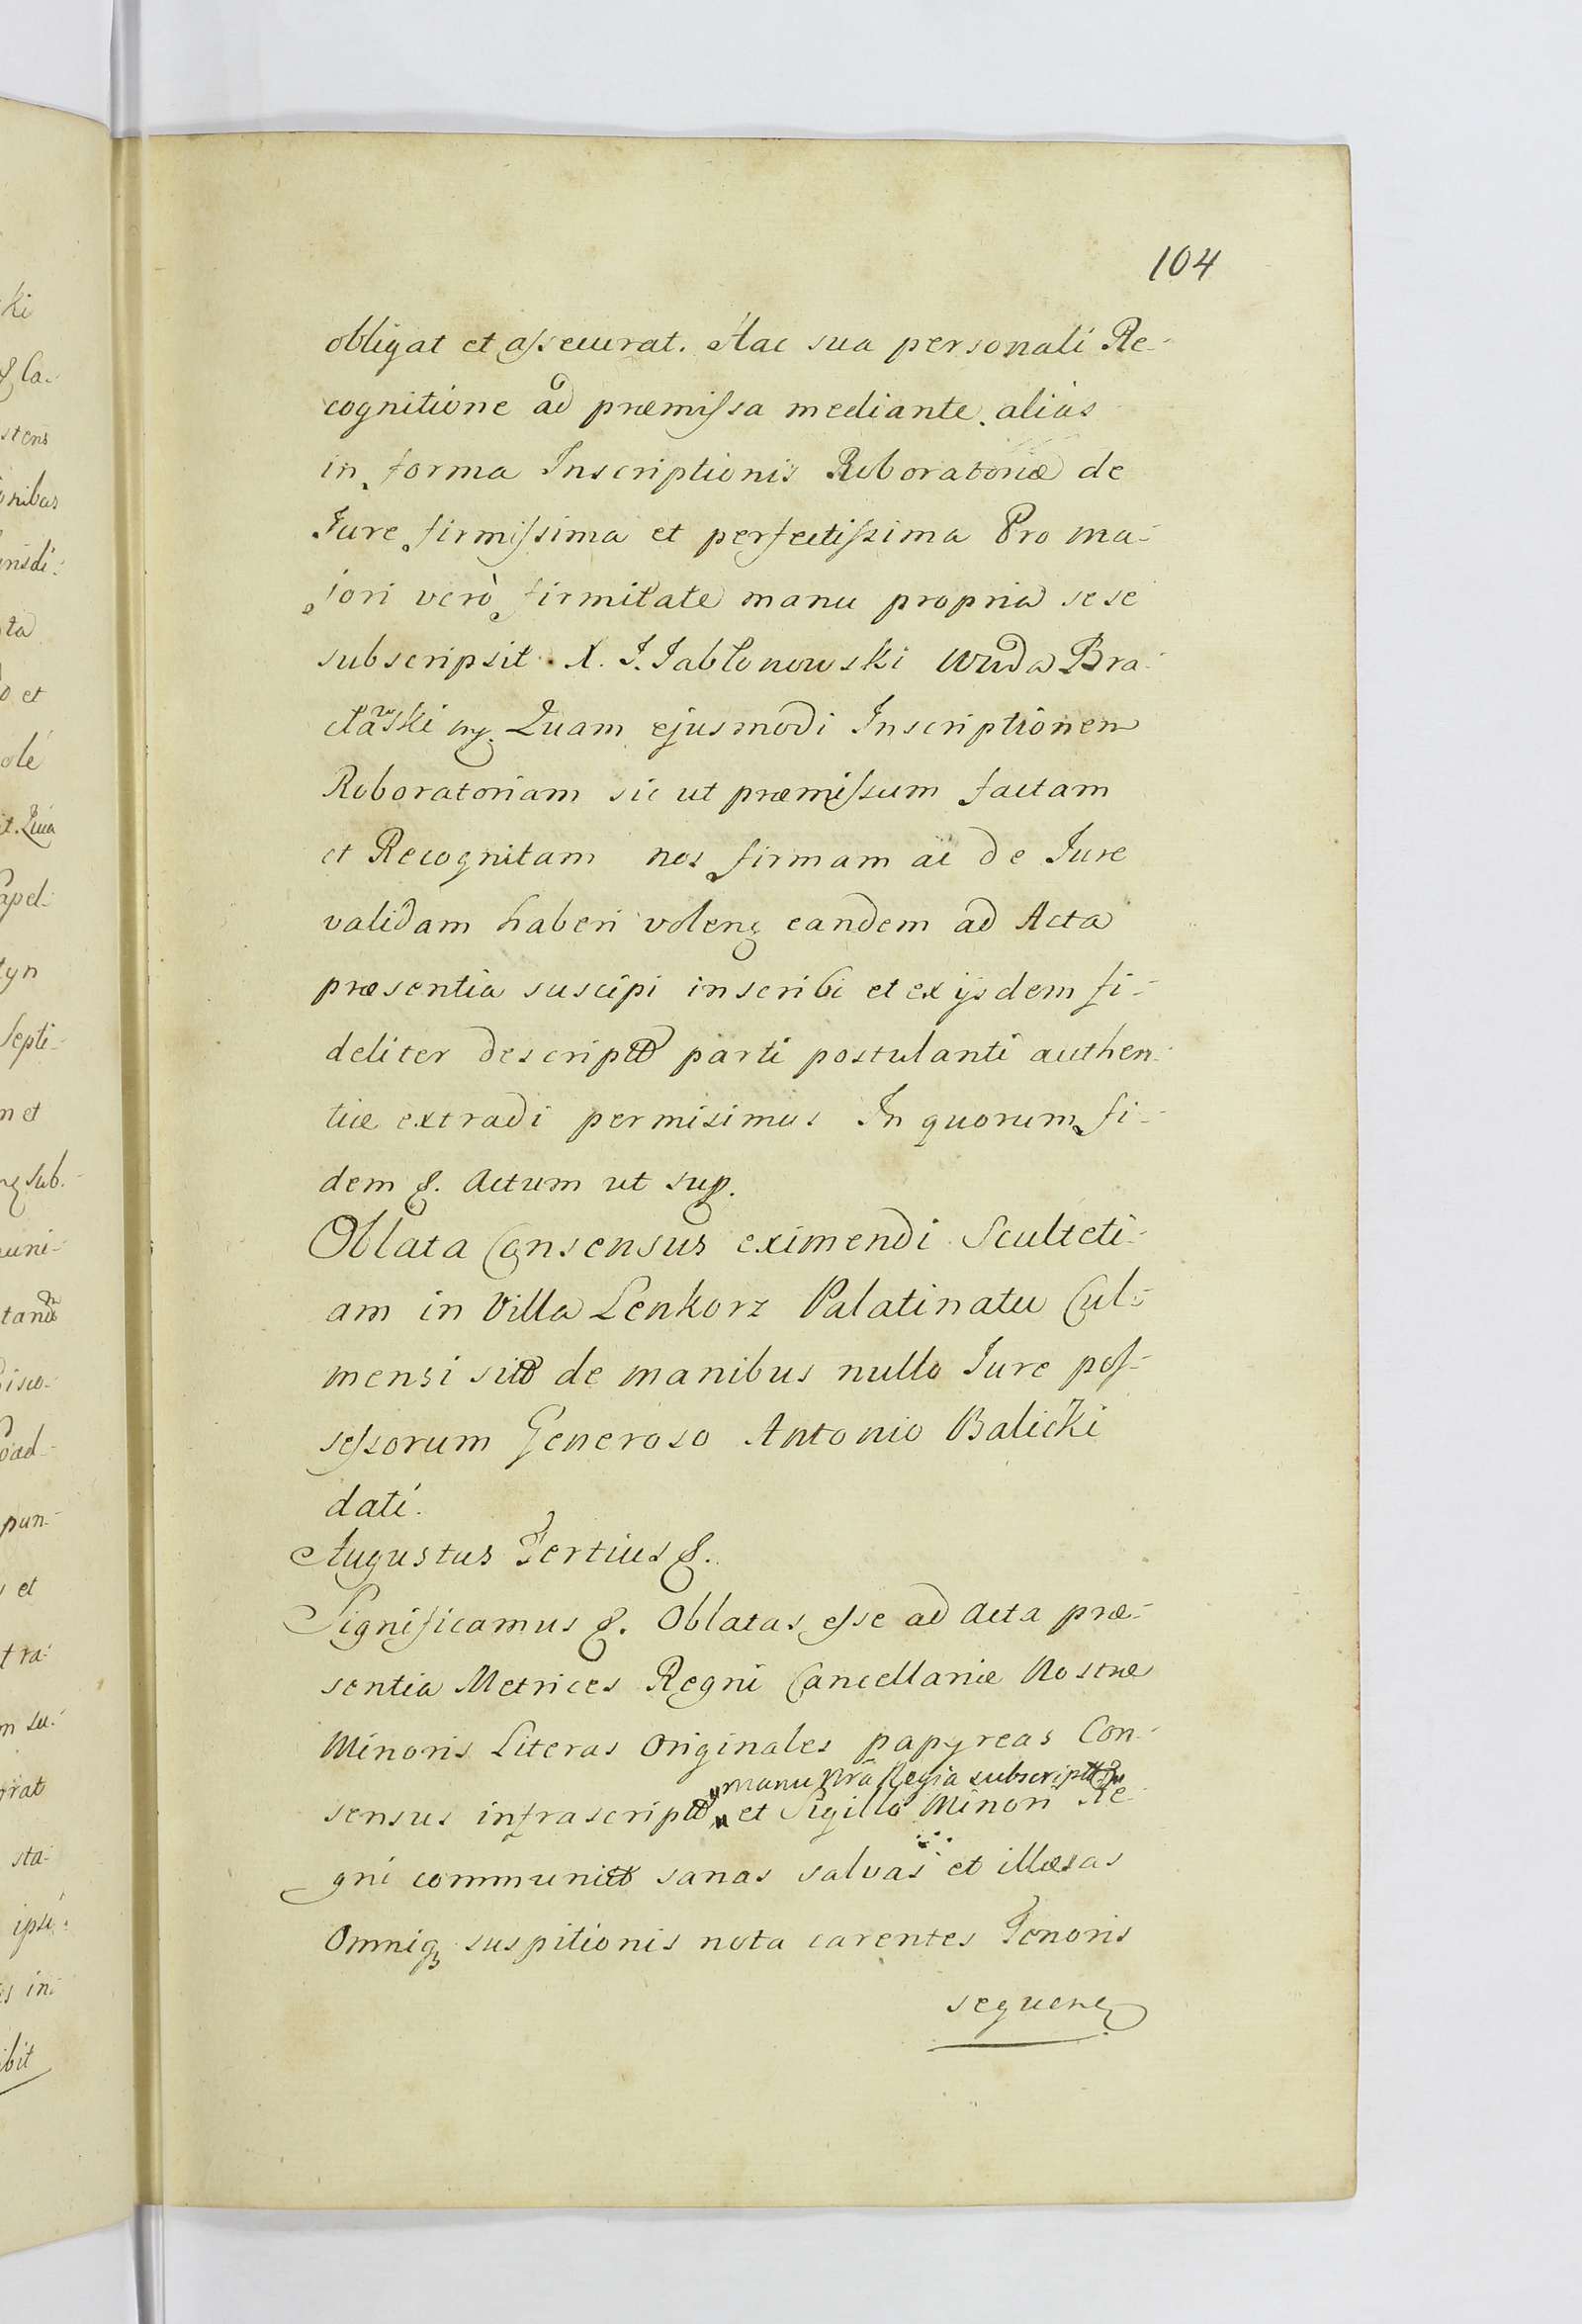 104
obligat et assecurat. Hac sua personali Re-
cognitione ad præmissa mediante alias
in forma Inscriptionis Roboratoriæ de
Jure firmissima et perfectissima Pro ma-
jori verò firmitate manu propria sese
subscripsit. X. J. Jabłonowski Wuda Bra-
cławski mp. Quam ejusmodi Inscriptionem
Roboratoriam sic ut præmissum factam
et Recognitam nos firmam ac de Jure
validam haberi volens eandem ad Acta
præsentia suscipi inscribi et ex ijsdem fi-
deliter descript parti postulanti authen-
tice extradi permisimus In quorum fi-
dem &. Actum ut sup.
Oblata Consensus eximendi Sculteti-
am in Villa Lenkorz Palatinatu Cul-
mensi sit de manibus nullo Jure pos-
sessorum Generoso Antonio Balicki
dati.
Augustus Tertius &.
Significamus &. Oblatas esse ad Acta præ-
sentia Metrices Regni Cancellariæ Nostræ
Minoris Literas Originales papyreas Con-
manu Nrã Regia subscript
sensus infrascript et Sigillo Minori Re-
gni communit sanas salvas et illæsas
Omniq suspitionis nota carentes Tenoris
sequen
ki
&la-
stens
onibus
ta
o et
olé
it. Qua
apel-
tyn
septi-
m et
sub-
uni-
isco-
oad-
pun-
et
tra-
m su-
rat
sta-
ipsi
es in-
ibit